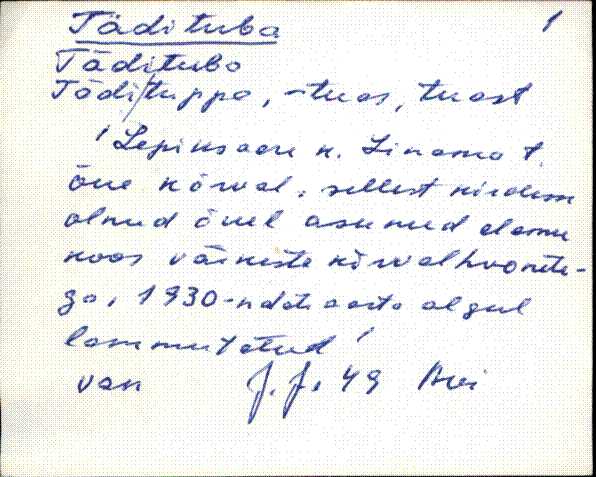 Tädituba 1
Täditubo
Tädi/tuppo, -tuas, tuast
'Lepiksaare k. Linama t.
õue kõrval, sellest kirdem
olnud õuel asunud elamu
koos väikeste kõrvalhoonete-
ga, 1930-ndate aasta algul
lammutatud'
van J. J. 49